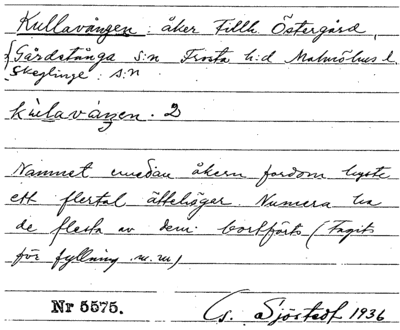 Kullavången : åker Tillh. Östergård,
Gårdstånga s:n Frosta h:d Malmöhus l.
Skeglinge s:n
kulavången. 2
Namnet emedan åkern fordom hyste
ett flertal ättehögar. Numera ha
de flesta av dem bortförts (Tagits
för fyllning m.m)
Nr 5575.
G. Sjöstedt 1936